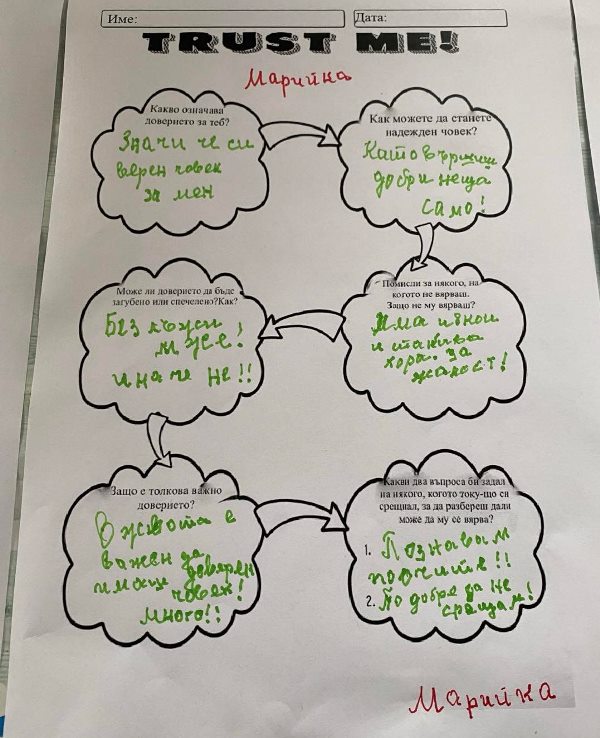 Име:
Дата:
TRUST ME!
Марийка
Какво означава
доверието за теб?
Значи че си
верен човек
за мен
Как можете да станете
надежден човек?
Като вършиш
добри неща
само!
Помисли за някого, на
когото не вярваш.
Защо не му вярваш?
Има и
и такива
хора. За
жалост!
Може ли доверието да бъде
загубено или спечелено?Как?
Без лъжи
може!
иначе не!!
Защо е толкова важно
доверието?
В живота е
важен да
имаш доверен
човек!
много!!
Какви два въпроса би задал
на някого, когото току-що си
срещнал, за да разбереш дали
може да му се вярва?
1. Познавам
почтите!!
2. По добре да не
срещам!
Марийка